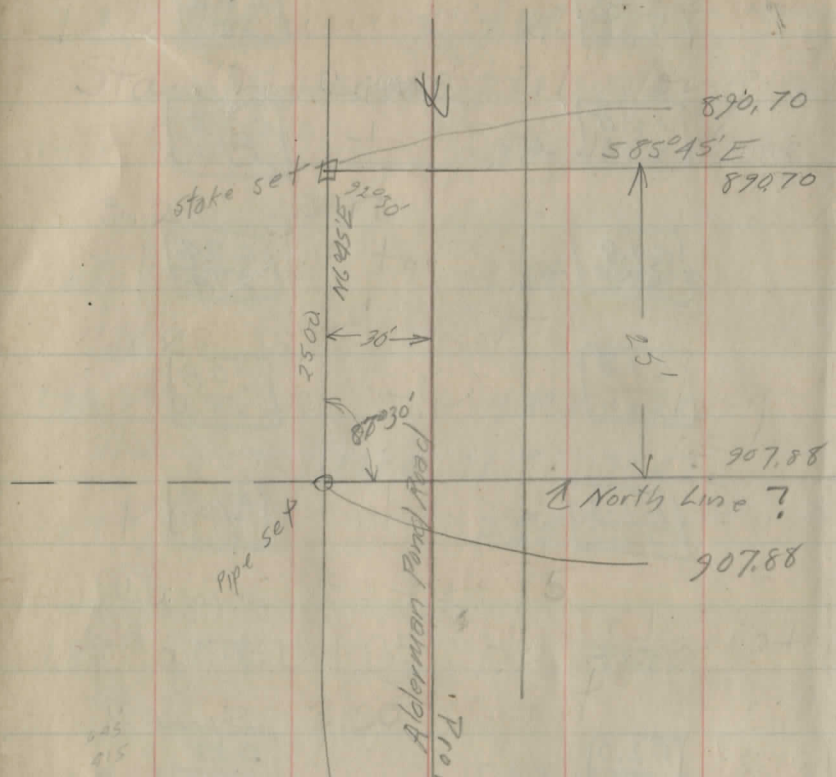 890.70
S85°45'E
890.70
stake set
92°30'
N6°45'E
2500
30'
25'
87°30'
907.88
North Line ?
pipe set
907.88
Alderman Pond Road